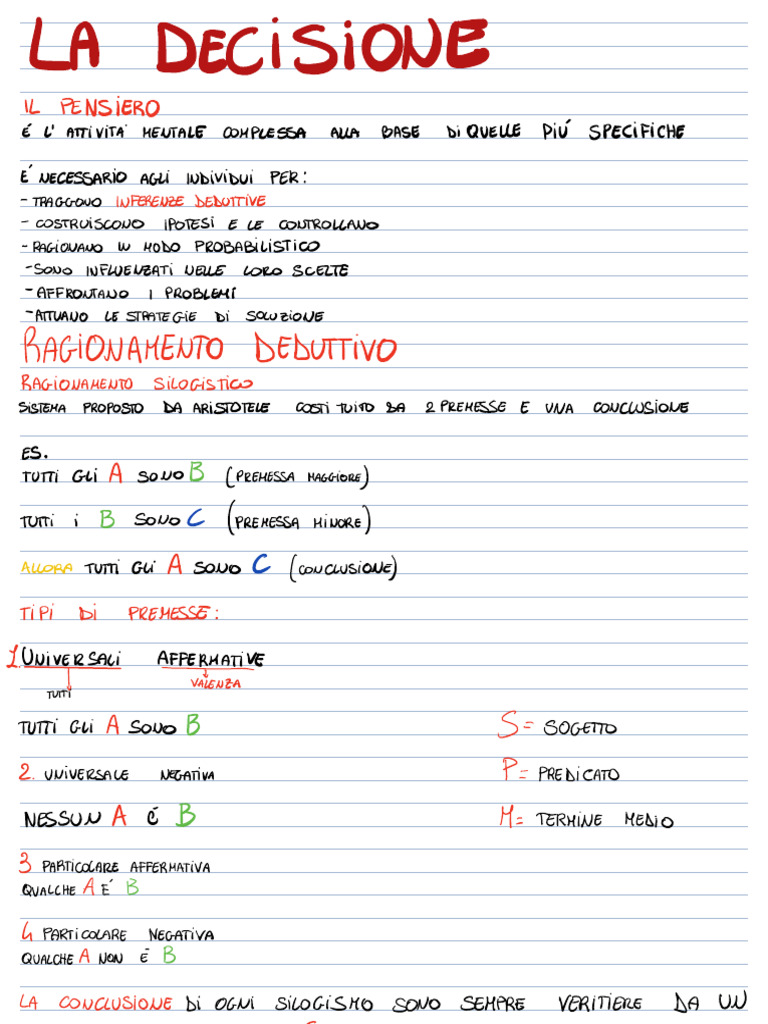 LA DECISIONE
IL PENSIERO
É L'ATTIVITÁ MENTALE COMPLESSA ALLA BASE DI QUELLE PIÚ SPECIFICHE
É NECESSARIO AGLI INDIVIDUI PER:
- TRAGGONO INFERENZE DEDUTTIVE
- COSTRUISCONO IPOTESI E LE CONTROLLANO
- RAGIONANO IN MODO PROBABILISTICO
- SONO INFLUENZATI NELLE LORO SCELTE
- AFFRONTANO I PROBLEMI
- ATTUANO LE STRATEGIE DI SOLUZIONE
RAGIONAMENTO DEDUTTIVO
RAGIONAMENTO SILOGISTICO
SISTEMA PROPOSTO DA ARISTOTELE COSTITUITO DA 2 PREMESSE E UNA CONCLUSIONE
ES.
TUTTI GLI A SONO B (PREMESSA MAGGIORE)
TUTTI I B SONO C (PREMESSA MINORE)
ALLORA TUTTI GLI A SONO C (CONCLUSIONE)
TIPI DI PREMESSE:
1. UNIVERSALI AFFERMATIVE
TUTTI VALENZA
TUTTI GLI A SONO B S= SOGETTO
2. UNIVERSALE NEGATIVA P= PREDICATO
NESSUN A É B M= TERMINE MEDIO
3 PARTICOLARE AFFERMATIVA
QUALCHE A É B
4 PARTICOLARE NEGATIVA
QUALCHE A NON É B
LA CONCLUSIONE DI OGNI SILOGISMO SONO SEMPRE VERITIERE DA UN